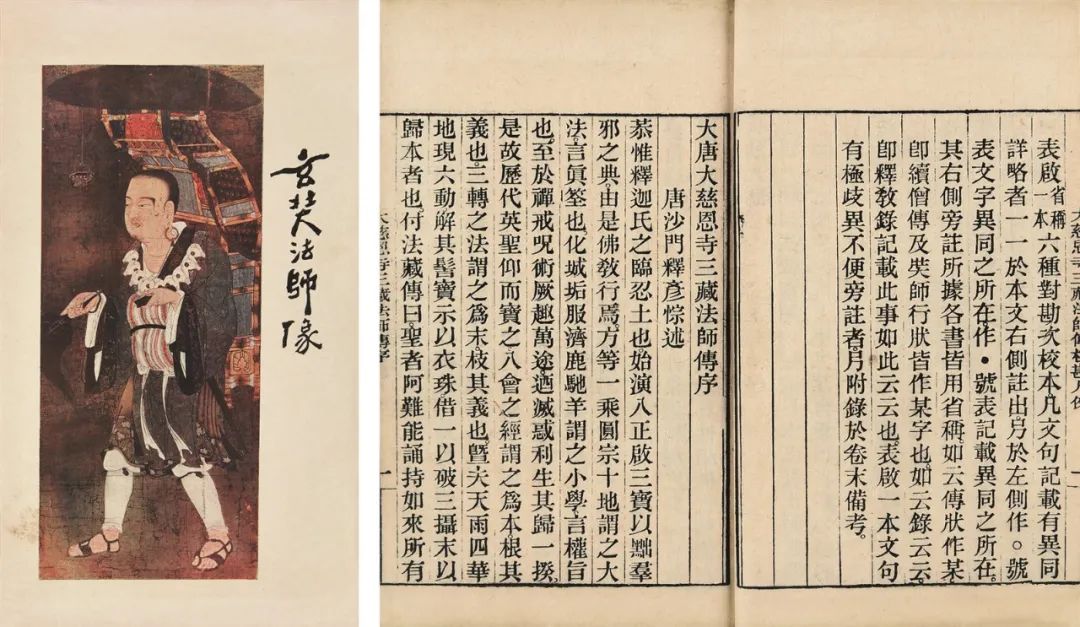 玄奘法師像
表啟省稱一本六種對勘次校本凡文句記載有異同
詳略者一一於本文右側註出。另於左側作。號
表文字異同之所在。作•號表記載異同之所在。
其右側旁註所據各書皆用省稱。如云傳狀作某
卽續僧傳及奘師行狀皆作某字也。如云錄云云
卽釋教錄記載此事如此云云也。表啟一本文句
有極歧異不便旁註者。另附錄於卷末備考。
大唐大慈恩寺三藏法師傳序
唐沙門釋彥悰述
恭惟釋迦氏之臨忍土也。始演八正啟三寶以黜羣
邪之典。由是佛教行焉。方等一乘圓宗十地謂之大
法。言眞筌也。化城垢服濟鹿馳羊謂之小學。言權旨
也。至於禪戒呪術厥趣萬途。迺滅惑利生其歸一揆。
是故歷代英聖仰而寶之。八會之經謂之為本根其
義也。三轉之法謂之為末枝其義也。暨夫天雨四華
地現六動解其髻寶示以衣珠借一以破三攝末以
歸本者也。付法藏傳曰。聖者阿難能誦持如來所有
大慈恩寺三藏法師傳序
一